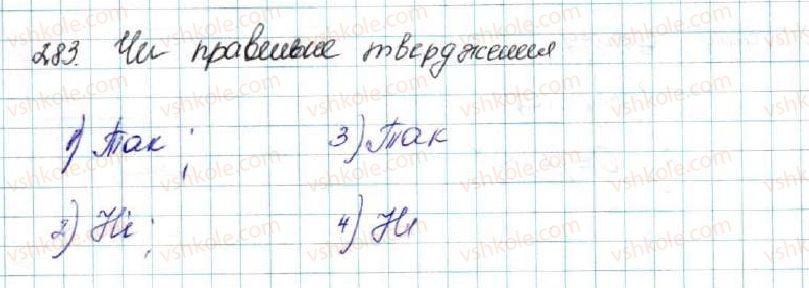 283. Чи правильне твердження
1) Так; 3) Так
2) Ні; 4) Ні
vshkole.com